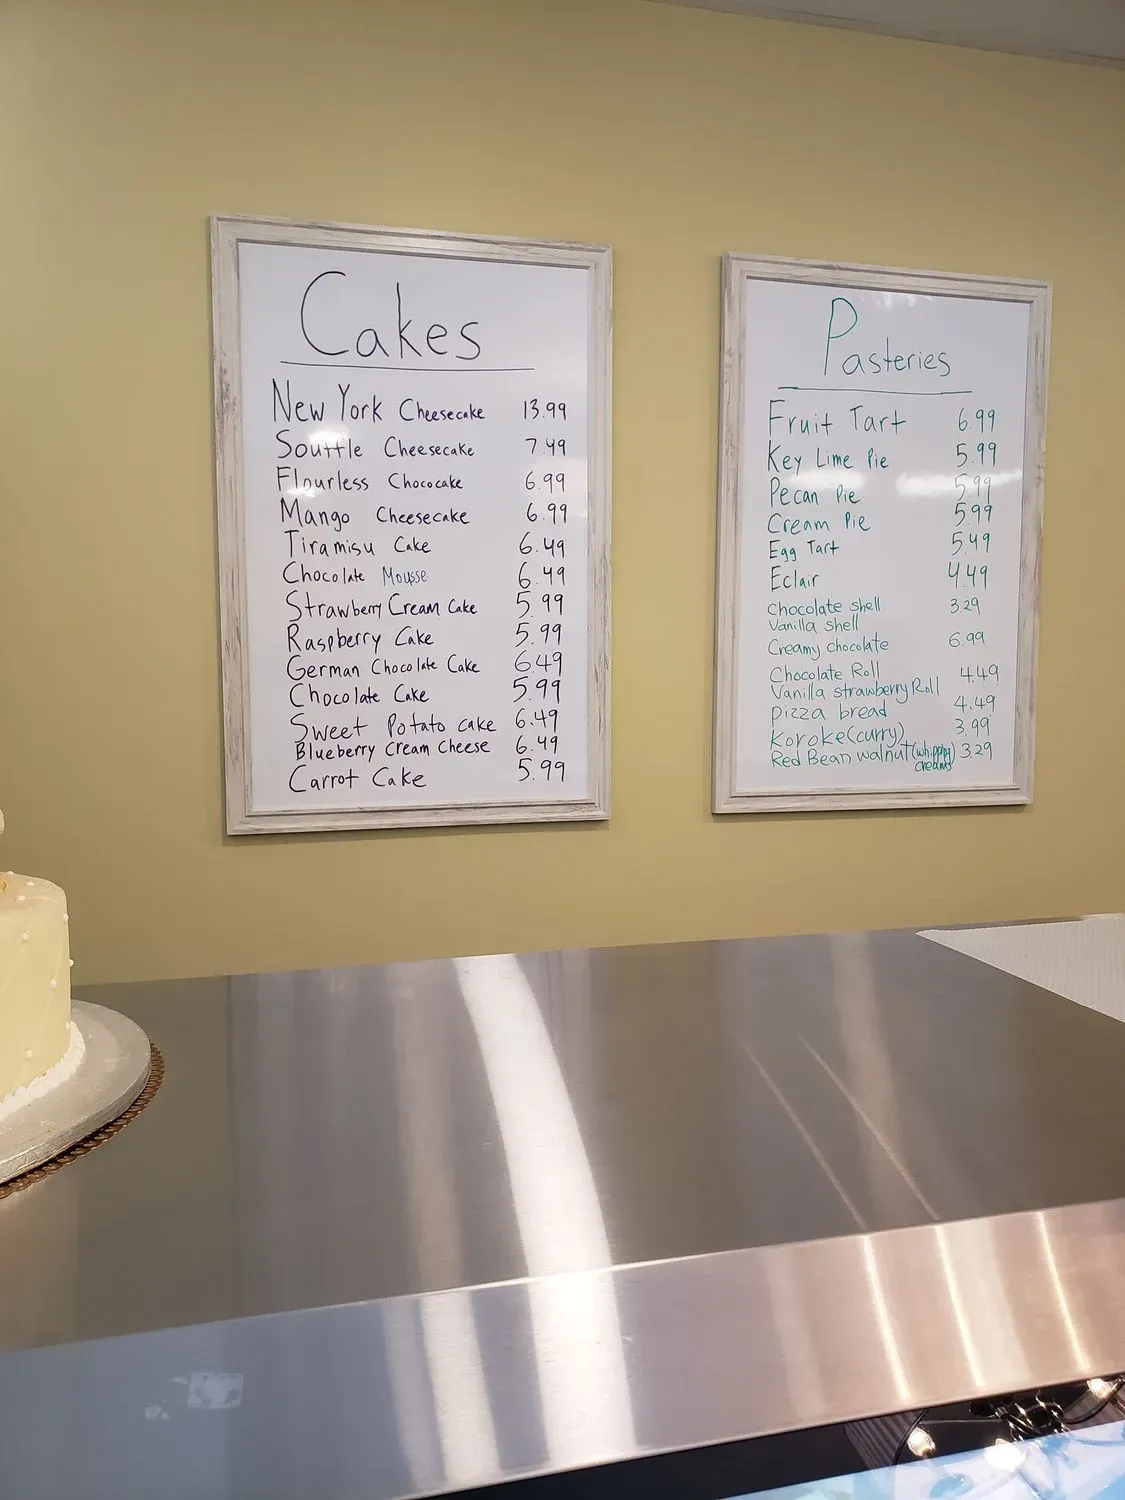 Cakes
New York Cheesecake 13.99
Souffle Cheesecake 7.49
Flourless Chococake 6.99
Mango Cheesecake 6.99
Tiramisu Cake 6.49
Chocolate Mousse 6.49
Strawberry Cream Cake 5.99
Raspberry Cake 5.99
German Chocolate Cake 6.49
Chocolate Cake 5.99
Sweet Potato cake 6.49
Blueberry Cream Cheese 6.49
Carrot Cake 5.99
Pasteries
Fruit Tart 6.99
Key Lime Pie 5.99
Pecan Pie 5.99
Cream Pie 5.99
Egg Tart 5.49
Eclair 4.49
Chocolate shell 3.29
Vanilla shell
Creamy chocolate 6.99
Chocolate Roll 4.49
Vanilla strawberry Roll
Pizza bread 4.49
Koroke(curry) 3.99
Red Bean walnut (whipping cream) 3.29